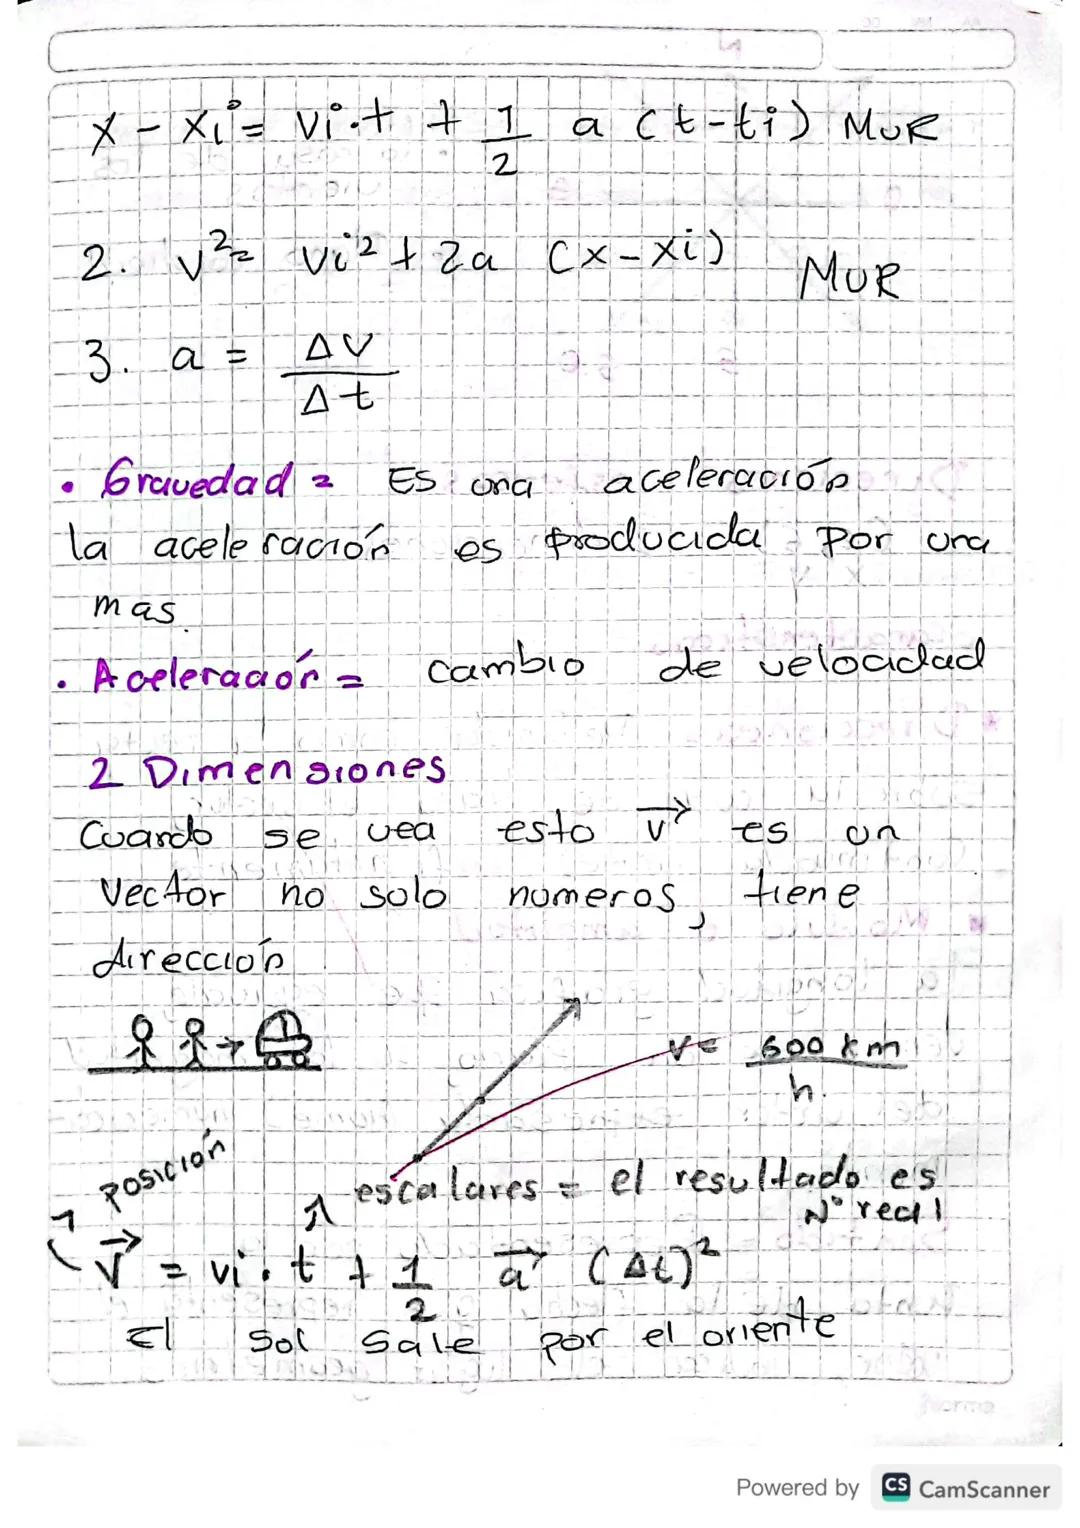 x - xi = vi·t + 1/2 a (t-ti) MUR
2. v²= vi² + 2a (x-xi) MUR
3. a = ΔV/Δt
• Gravedad = Es una aceleración
la aceleración es producida por una
mas.
• Aceleración = cambio de velocidad
2 Dimensiones
Cuando se vea esto v⃗ es un
Vector no solo numeros, tiene
dirección
v= 600 km/h.
posición
escalares = el resultado es
N° real
v⃗ = vi · t + 1/2 a⃗ (Δt)²
El sol sale por el oriente
Powered by CS CamScanner